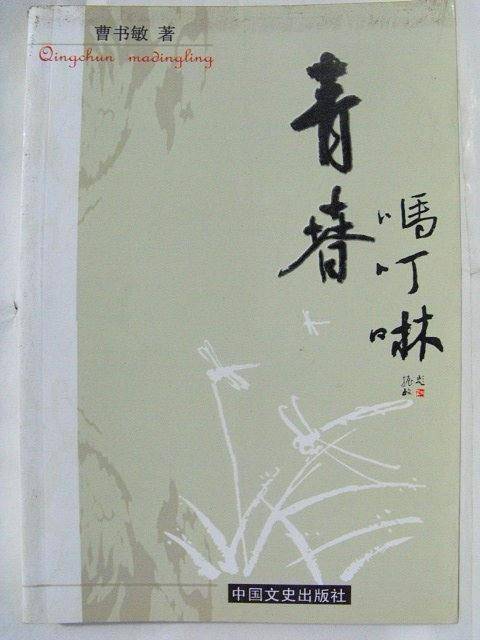 曹书敏 著
Qingchun madingling
青春
嗎叮啉
中国文史出版社